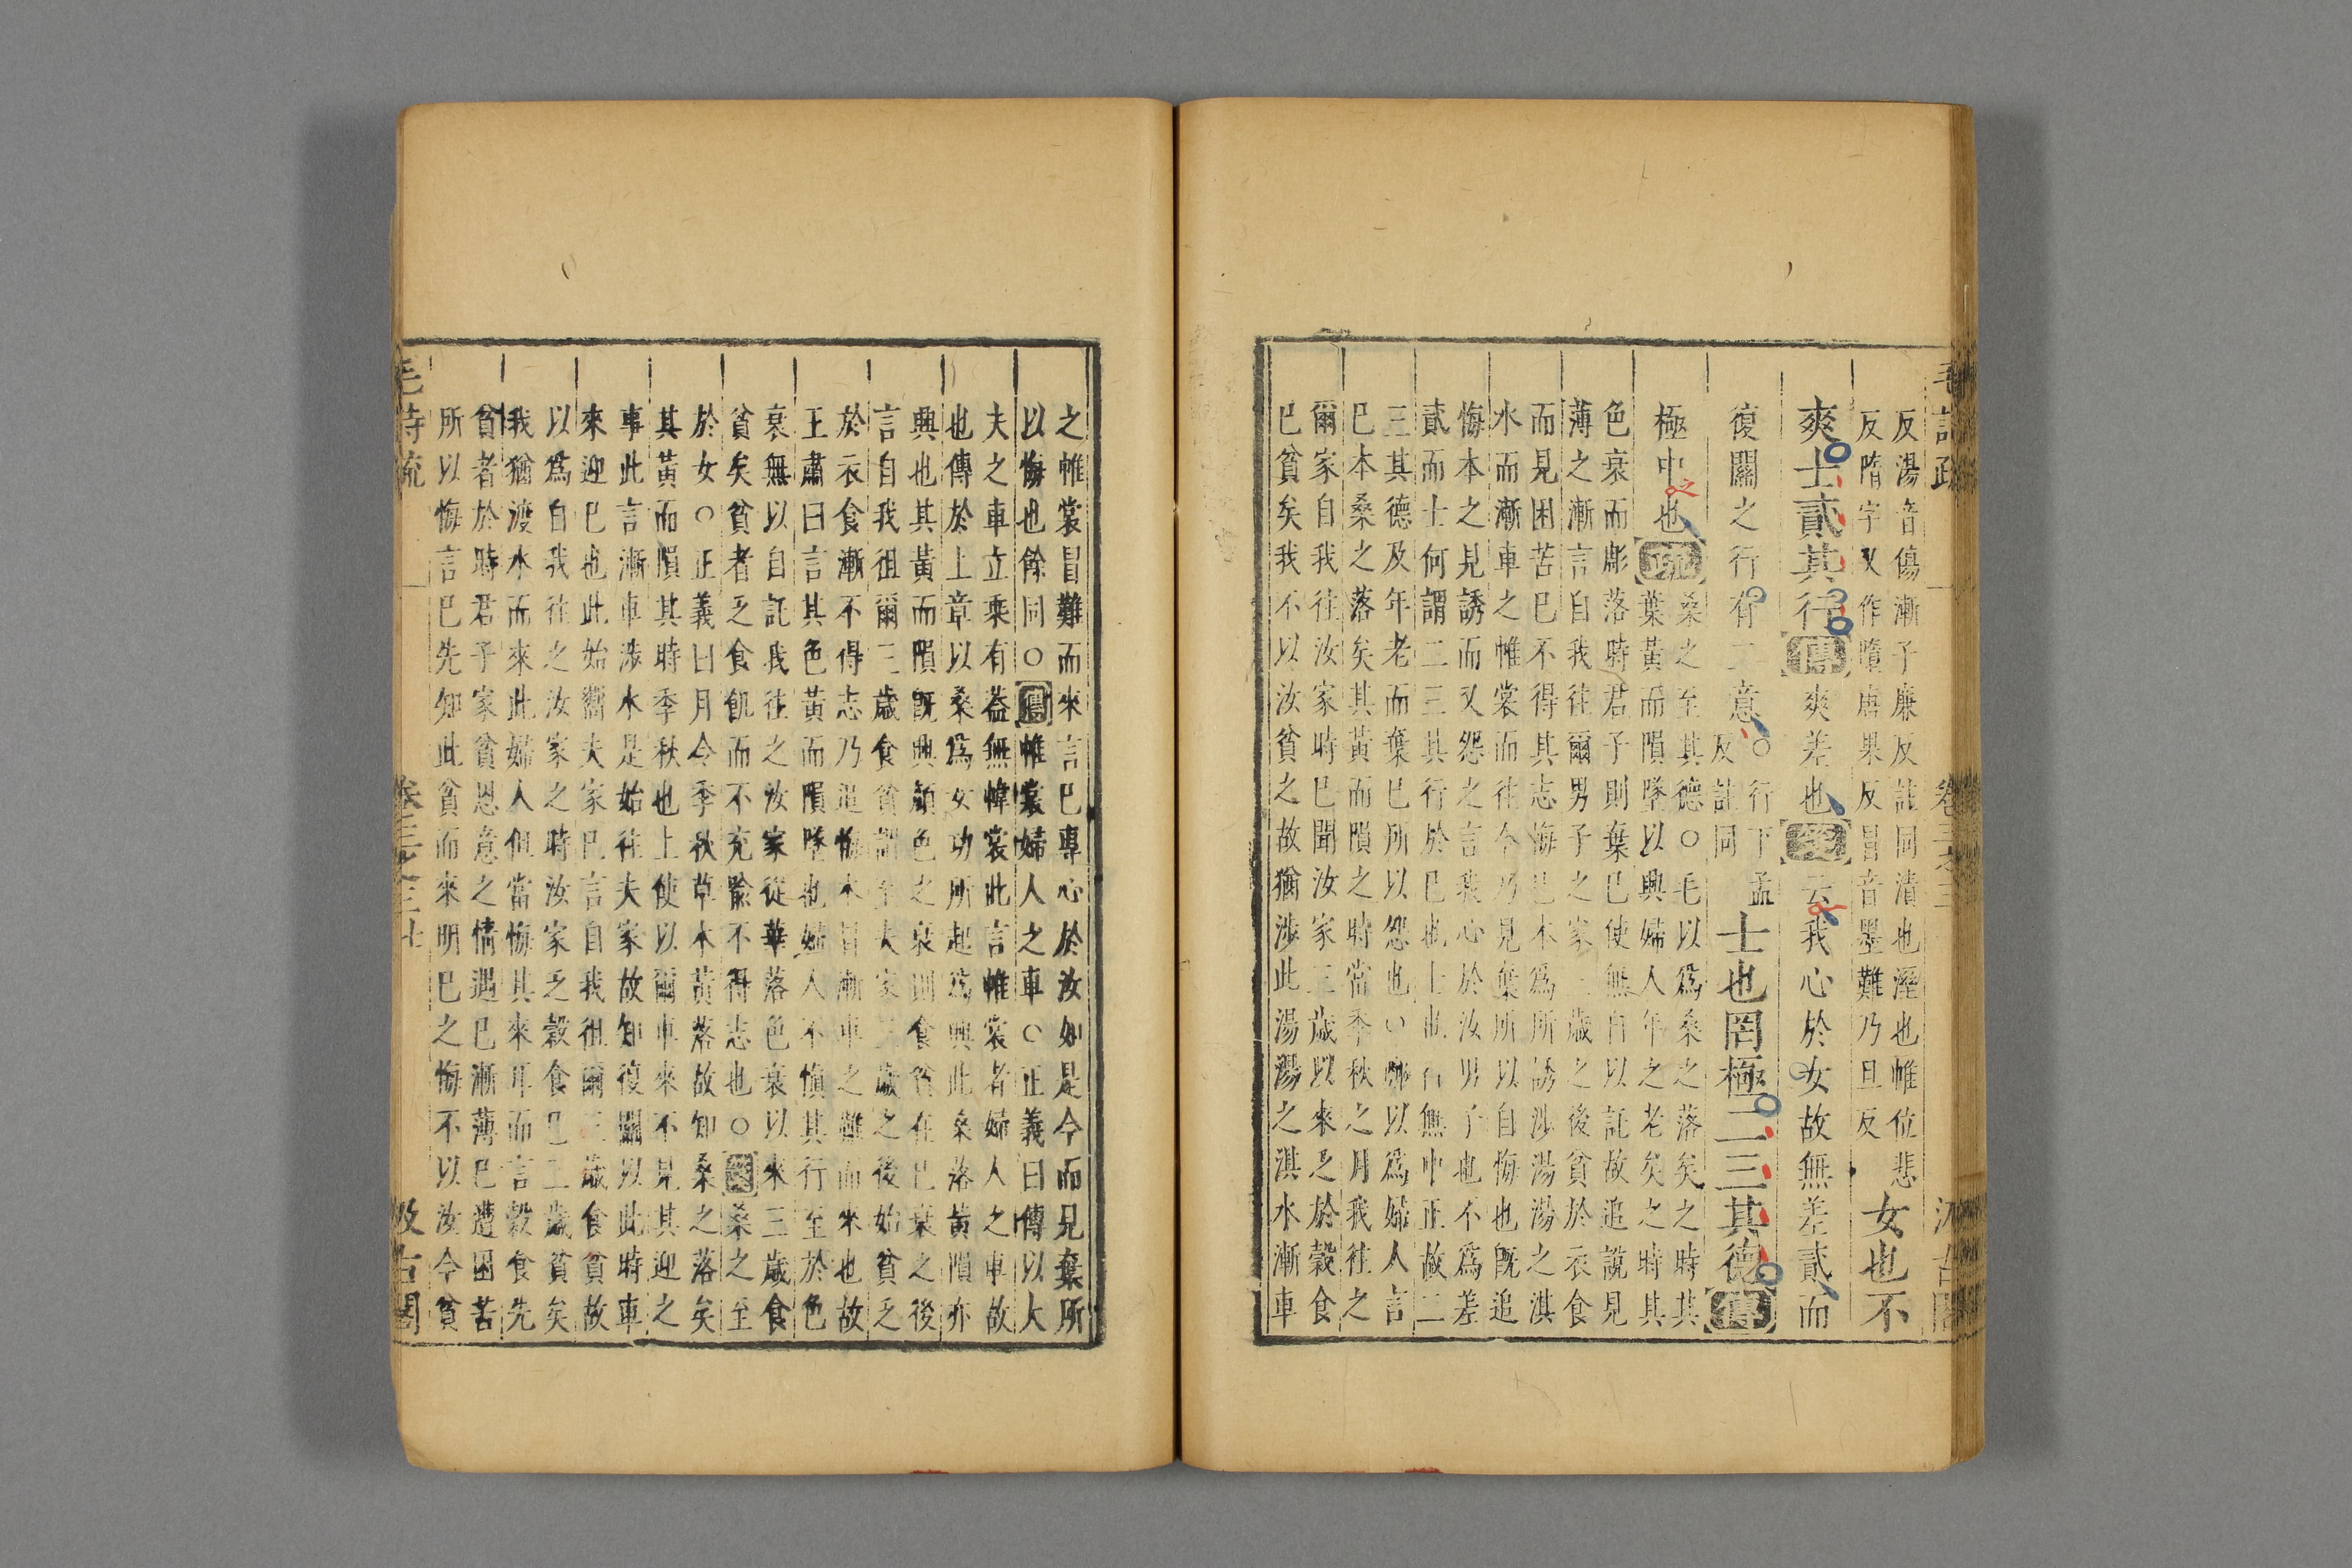 毛詩疏
卷三之三
汲古閣
反湯音傷漸子廉反註同漬也溼也帷位悲
反隋字又作墮唐果反冒音墨難乃旦反
女也不
爽士貳其行傳爽差也箋云我心於女故無差貳而
復關之行有二意
○行下孟
反註同
士也罔極二三其德傳
極中也疏
桑之至其德○毛以爲桑之落矣之時其
葉黃而隕墜以興婦人年之老矣之時其
色衰而彫落時君子則棄已使無自以託故追說見
薄之漸言自我往爾男子之家三歲之後貧於衣食
而見困苦已不得其志悔已本爲所誘涉湯湯之淇
水而漸車之帷裳而往今乃見棄所以自悔也旣追
悔本之見誘而又怨之言我心於汝男子也不爲差
貳而士何謂二三其行於已也士也行無中正故二
三其德及年老而棄已所以怨也○鄭以爲婦人言
已本桑之落矣其黃而隕之時當季秋之月我往之
爾家自我往汝家時已聞汝家三歲以來乏於穀食
已貧矣我不以汝貧之故猶涉此湯湯之淇水漸車
之帷裳冒難而來言已專心於汝如是今而見棄所
以悔也餘同○傳帷裳婦人之車○正義曰傳以大
夫之車立乘有葢無幃裳此言帷裳者婦人之車故
也傳於上章以桑爲女功所起爲興此桑落黃隕亦
興也其黃而隕旣興顏色之衰則食貧在已衰之後
言自我徂爾三歲食貧謂至夫家三歲之後始貧乏
於衣食漸不得志乃追悔本冒漸車之難而來也故
王肅曰言其色黃而隕墜也婦人不愼其行至於色
衰無以自託我往之汝家從華落色衰以來三歲食
貧矣貧者乏食飢而不充喩不得志也○箋桑之至
於女○正義曰月令季秋草木黃落故知桑之落矣
其黃而隕其時季秋也上使以爾車來不見其迎之
事此言漸車涉水是始往夫家故知復關以此時車
來迎已也此始嚮夫家已言自我徂爾三歲食貧故
以爲自我往之汝家之時汝家乏穀食已三歲貧矣
我猶渡水而來此婦人但當悔其來耳而言穀食先
貧者於時君子家貧恩意之情遇已漸薄已遭困苦
所以悔言已先知此貧而來明已之悔不以汝今貧
毛詩疏
卷三之三
汲古閣